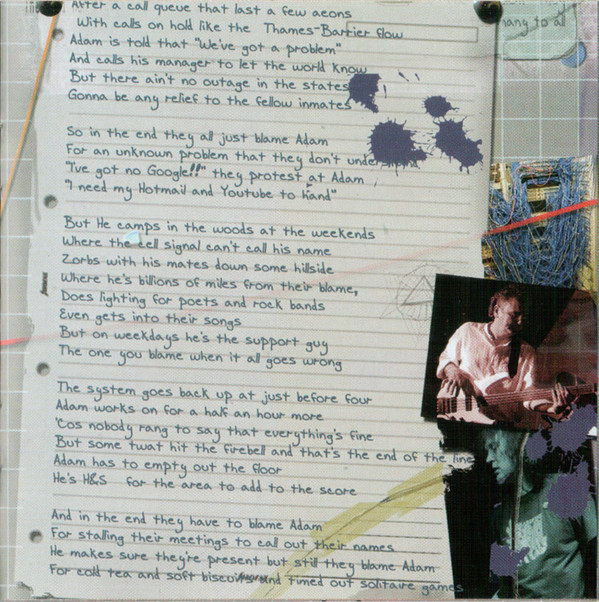 After a call queue that last a few aeons
With calls on hold like the Thames-Barrier flow
Adam is told that "We've got a problem"
And calls his manager to let the world know
But there ain't no outage in the states
Gonna be any relief to the fellow inmates
So in the end they all just blame Adam
For an unknown problem that they don't understand
"I've got no Google!!" they protest at Adam
"I need my Hotmail and Youtube to hand"
But He camps in the woods at the weekends
Where the cell signal can't call his name
Zorbs with his mates down some hillside
Where he's billions of miles from their blame,
Does lighting for poets and rock bands
Even gets into their songs
But on weekdays he's the support guy
The one you blame when it all goes wrong
The system goes back up at just before four
Adam works on for a half an hour more
'Cos nobody rang to say that everything's fine
But some twat hit the firebell and that's the end of the line
Adam has to empty out the floor
He's H&S for the area to add to the score
And in the end they have to blame Adam
For stalling their meetings to call out their names
He makes sure they're present but still they blame Adam
For cold tea and soft biscuits and timed out solitaire games
to all